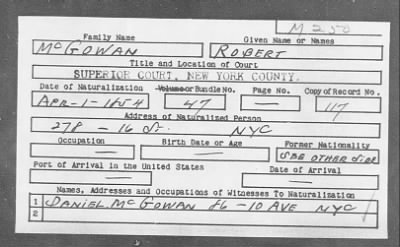 M 250
Family Name Given Name or Names
McGOWAN ROBERT
Title and Location of Court
SUPERIOR COURT, NEW YORK COUNTY.
Date of Naturalization Volume or Bundle No. Page No. Copy of Record No.
APR-1-1854 47 — 117
Address of Naturalized Person
278 — 16 St. NYC
Occupation Birth Date or Age Former Nationality
— — SEE OTHER SIDE
Port of Arrival in the United States Date of Arrival
— —
Names, Addresses and Occupations of Witnesses To Naturalization
1 DANIEL McGOWAN 86 — 10 AVE NYC
2